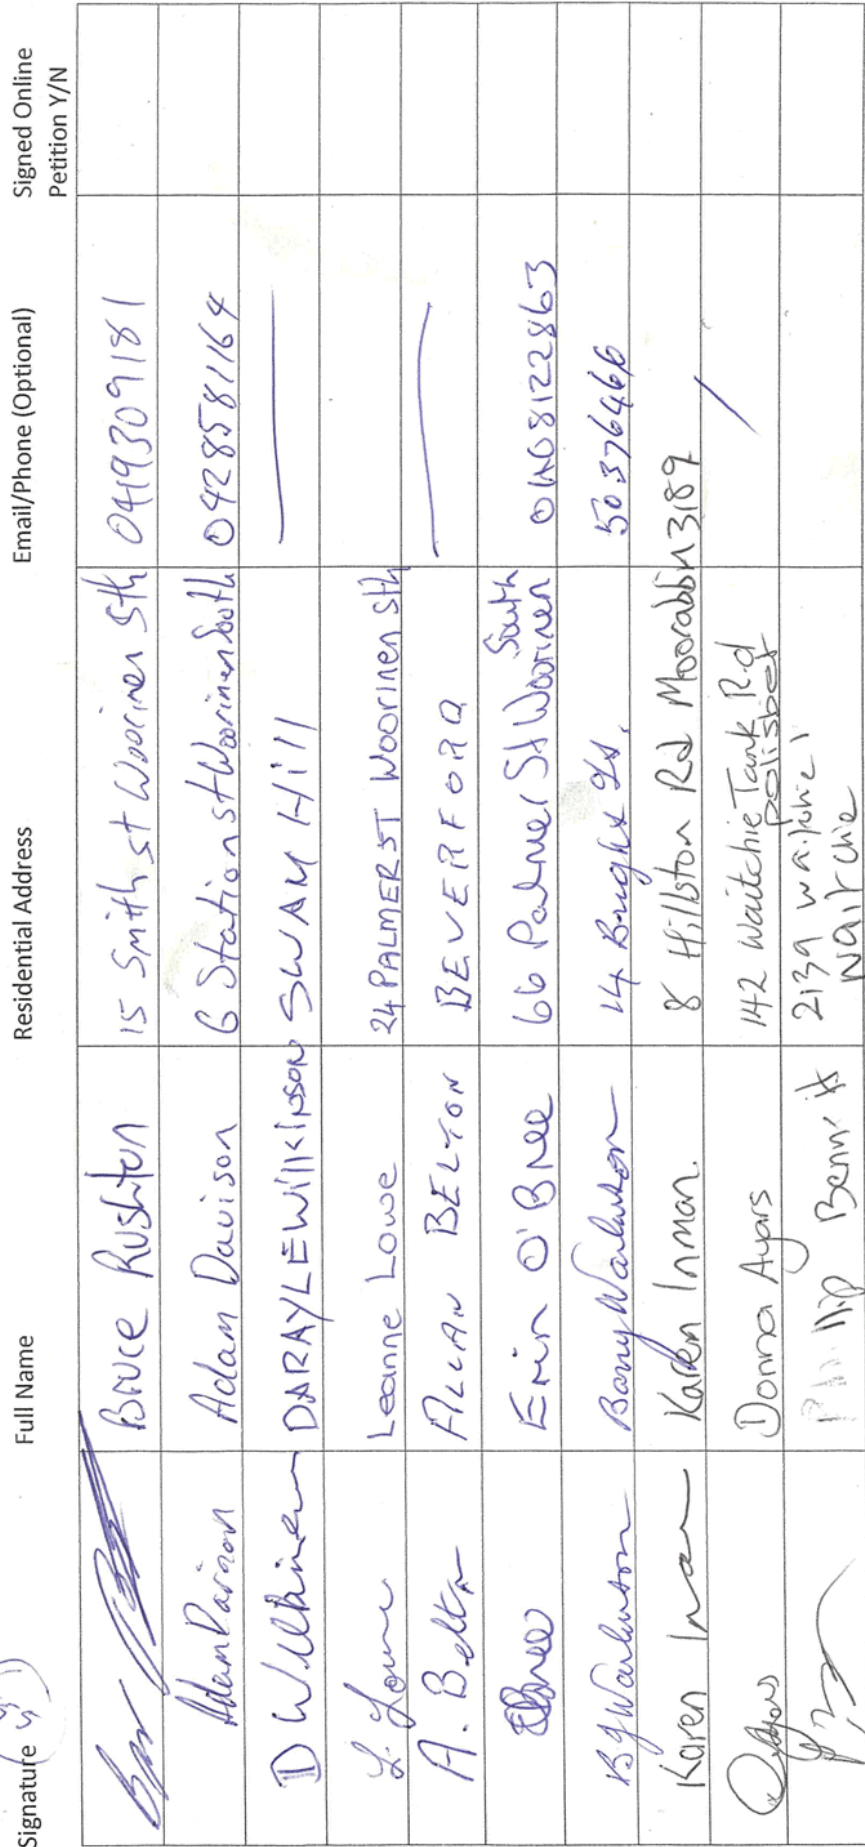 Signature Full Name Residential Address Email/Phone (Optional) Signed Online
Petition Y/N
Bruce Rushton 15 Smith st Woorinen Sth 0419309181
Adam Davison Adam Davison 6 Station st Woorinen South 0428581164
D Wilkinson DARAYLE Wilkinson SWAN Hill
L. Lowe Leanne Lowe 24 PALMER ST Woorinen Sth
A. Belton ALLAN BELTON BEVERFORD
EO'Bree Erin O'Bree 66 Palmer St Woorinen South 0408122863
B J Warburton Barry Warburton 14 Bright St. 50376466
Karen Inman Karen Inman. 8 Hillston Rd Moorabbin 3189
Donna Ayars 142 Waitchie Tank Rd
polisbet
Phillip Bennett 2139
Waitchie